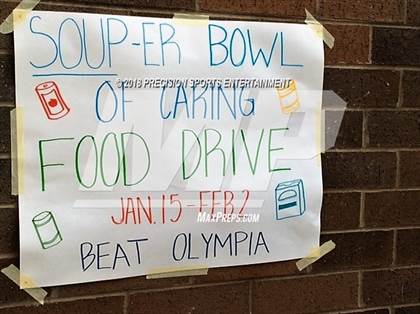 SOUP-ER BOWL
© 2018 PRECISION SPORTS ENTERTAINMENT
OF CARING
FOOD DRIVE
JAN. 15-FEB 2
MAXPREPS.COM
BEAT OLYMPIA